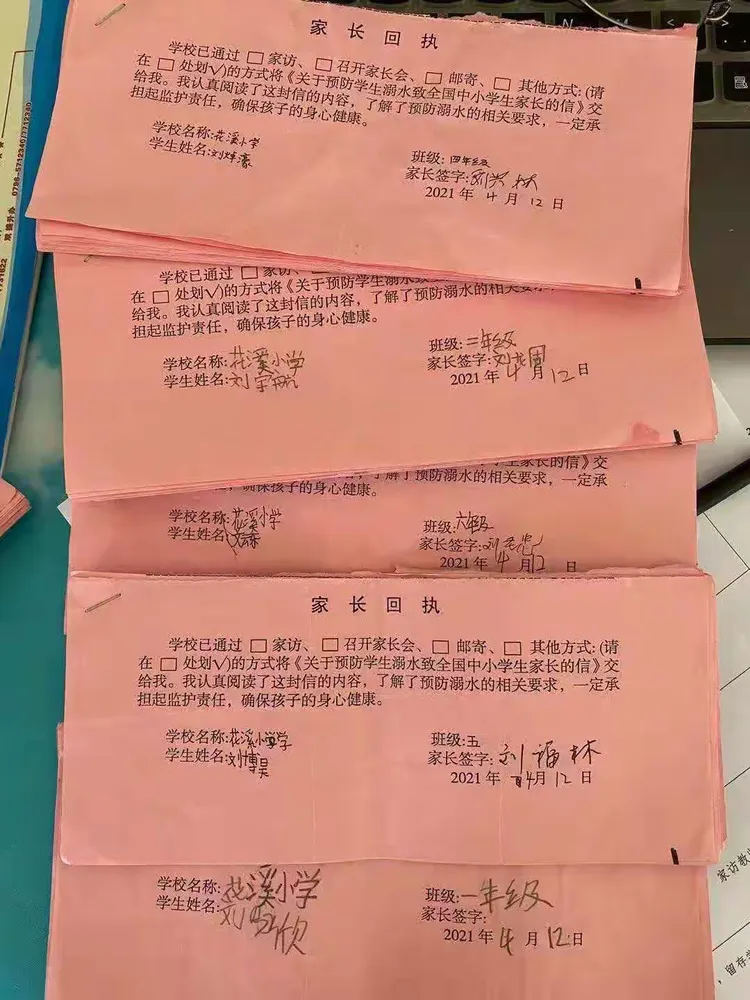 家长回执
学校已通过 □ 家访、 □ 召开家长会、 □ 邮寄、 □ 其他方式:(请
在 □ 处划√)的方式将《关于预防学生溺水致全国中小学生家长的信》交
给我。我认真阅读了这封信的内容，了解了预防溺水的相关要求，一定承
担起监护责任，确保孩子的身心健康。
学校名称:花溪小学
学生姓名:刘
班级:四年级
家长签字:刘兴林
2021年4月12日
学校已通过 □ 家访、
在 □ 处划√)的方式将《关于预防学生溺水致
给我。我认真阅读了这封信的内容，了解了预防溺水的相关要求
担起监护责任，确保孩子的身心健康。
学校名称:花溪小学
学生姓名:刘宇航
班级:三年级
家长签字:刘
2021年4月12日
中小学生家长的信》交
了解了预防溺水的相关要求，一定承
确保孩子的身心健康。
学校名称:花溪小学
学生姓名:
班级:六年级
家长签字:刘
2021年4月12日
家长回执
学校已通过 □ 家访、 □ 召开家长会、 □ 邮寄、 □ 其他方式:(请
在 □ 处划√)的方式将《关于预防学生溺水致全国中小学生家长的信》交
给我。我认真阅读了这封信的内容，了解了预防溺水的相关要求，一定承
担起监护责任，确保孩子的身心健康。
学校名称:花溪小学
学生姓名:刘博昊
班级:五
家长签字:刘福林
2021年4月12日
学校名称:花溪小学
学生姓名:刘欣
班级:一年级
家长签字:
2021年4月12日
0796-5712340/7712340
家访教师
留存学